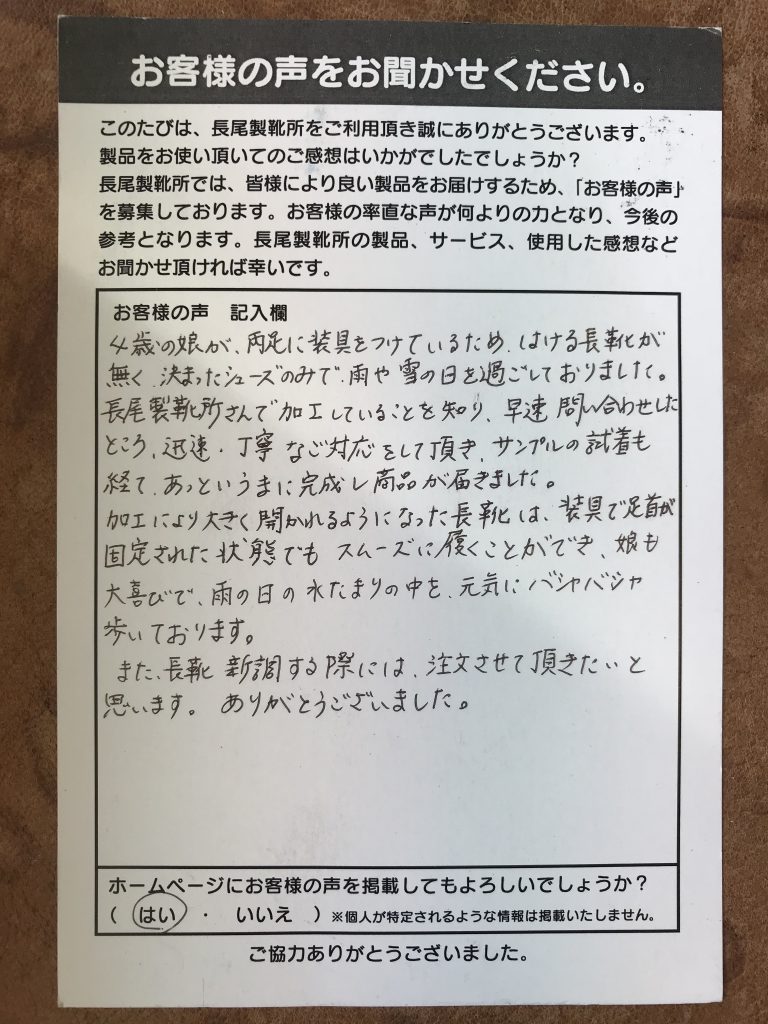 お客様の声をお聞かせください。
このたびは、長尾製靴所をご利用頂き誠にありがとうございます。
製品をお使い頂いてのご感想はいかがでしたでしょうか？
長尾製靴所では、皆様により良い製品をお届けするため、「お客様の声」
を募集しております。お客様の率直な声が何よりの力となり、今後の
参考となります。長尾製靴所の製品、サービス、使用した感想など
お聞かせ頂ければ幸いです。
お客様の声　記入欄
4歳の娘が、両足に装具をつけているため、はける長靴が
無く、決まったシューズのみで、雨や雪の日を過ごしておりました。
長尾製靴所さんで加工していることを知り、早速問い合わせした
ところ、迅速・丁寧なご対応をして頂き、サンプルの試着も
経て、あっというまに完成し商品が届きました。
加工により大きく開かれるようになった長靴は、装具で足首が
固定された状態でもスムーズに履くことができ、娘も
大喜びで、雨の日の水たまりの中を、元気にバシャバシャ
歩いております。
また、長靴新調する際には、注文させて頂きたいと
思います。ありがとうございました。
ホームページにお客様の声を掲載してもよろしいでしょうか？
（　はい　・　いいえ　）※個人が特定されるような情報は掲載いたしません。
ご協力ありがとうございました。